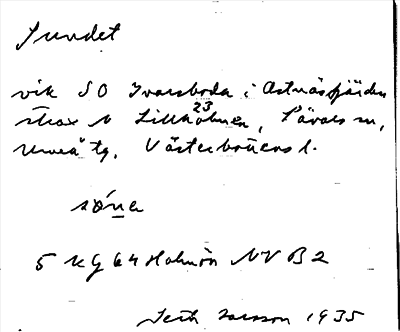 Sundet
vik SO Ivarsboda i Östnäsfjärden
strax N Lillholmen, Sävars sn,
23
Umeå tg. Västerbottens l.
5 KG 64 Holmön NV B2
1935